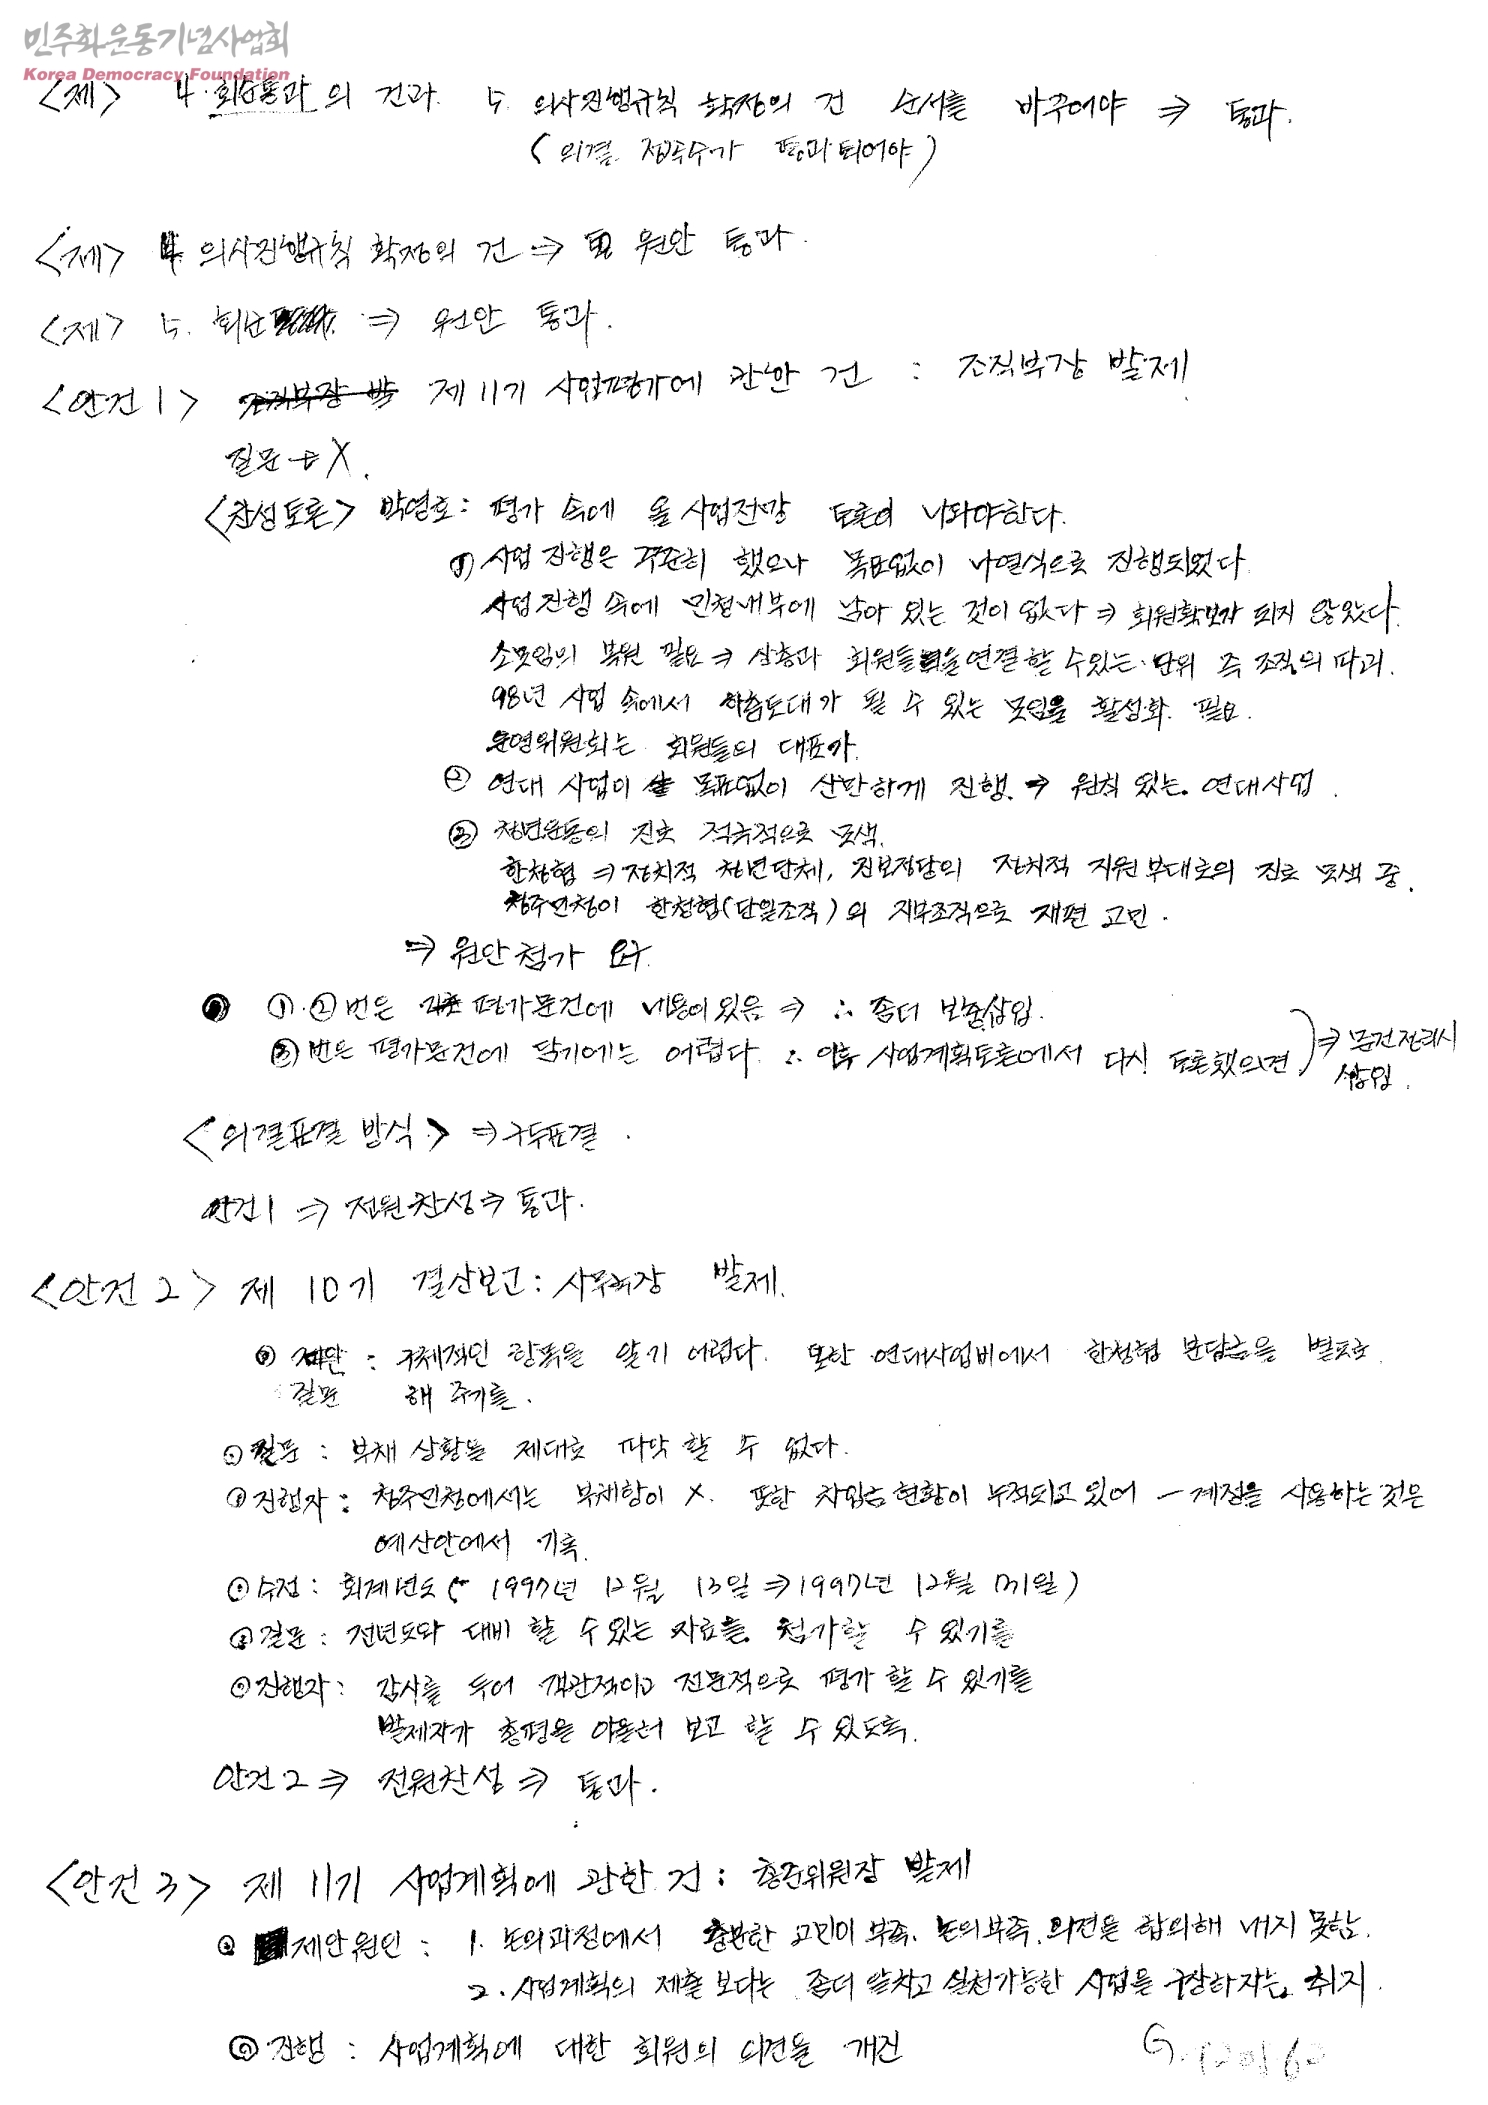 민주화운동기념사업회
Korea Democracy Foundation
<제> 4. 회순통과의 건과 5. 의사진행규칙 확정의 건 순서를 바꾸어야 ⇒ 통과.
(의결 정족수가 통과되어야)
<제> 4 의사진행규칙 확정의 건 ⇒ 원안 통과.
<제> 5. 회순 ⇒ 원안 통과.
<안건 1> 조직부장 발 제 11기 사업평가에 관한 건 : 조직부장 발제
질문 → X.
<찬성토론> 박영호 : 평가 속에 올 사업전망 토론이 나와야한다.
① 사업 진행은 꾸준히 했으나 목표없이 나열식으로 진행되었다
사업진행 속에 민청내부에 남아 있는 것이 없다 ⇒ 회원확보가 되지 않았다.
소모임의 복원 필요 ⇒ 상층과 회원들을 연결할 수있는 단위 즉 조직의 파괴.
98년 사업 속에서 하층토대가 될 수 있는 모임을 활성화 필요.
운영위원회는 회원들의 대표가.
② 연대 사업이 목표없이 산만하게 진행. → 원칙 있는 연대사업.
③ 청년운동의 진로 적극적으로 모색.
한청협 ⇒ 정치적 청년단체, 진보정당의 정치적 지원부대로의 진로 모색 중.
청주민청이 한청협(단일조직)의 지부조직으로 재편 고민.
⇒ 원안첨가 요구.
① ② 번은 평가문건에 내용이있음 ⇒ ∴ 좀더 보충삽입.
③번은 평가문건에 담기에는 어렵다. ∴ 이후 사업계획토론에서 다시 토론했으면 ⇒ 문건정리시
삽입.
<의결표결 방식> ⇒ 구두표결.
안건1 ⇒ 전원찬성 ⇒ 통과.
<안건 2> 제 10기 결산보고 : 사무국장 발제.
제안 : 구체적인 항목을 알기 어렵다. 또한 연대사업비에서 한청협 분담금을 별도로
질문 해 주기를.
질문 : 부채 상황을 제대로 파악 할 수 없다.
진행자 : 청주민청에서는 부채항이 X. 또한 차입금 현황이 누적되고 있어 - 계정을 사용하는 것은
예산안에서 기록.
수정 : 회계년도 (1997년 12월 13일 ⇒ 1997년 12월 31일)
질문 : 전년도와 대비 할 수 있는 자료를 첨가할 수 있기를
진행자 : 감사를 두어 객관적이고 전문적으로 평가 할 수 있기를
발제자가 총평을 아울러 보고 할 수 있도록.
안건 2 ⇒ 전원찬성 ⇒ 통과.
<안건 3> 제 11기 사업계획에 관한 건 : 총준위원장 발제
제안원인 : 1. 논의과정에서 충분한 고민이 부족. 논의부족. 의견을 합의해 내지 못함.
2. 사업계획의 제출 보다는 좀더 알차고 실천가능한 사업을 구상하자는 취지.
진행 : 사업계획에 대한 회원의 의견을 개진